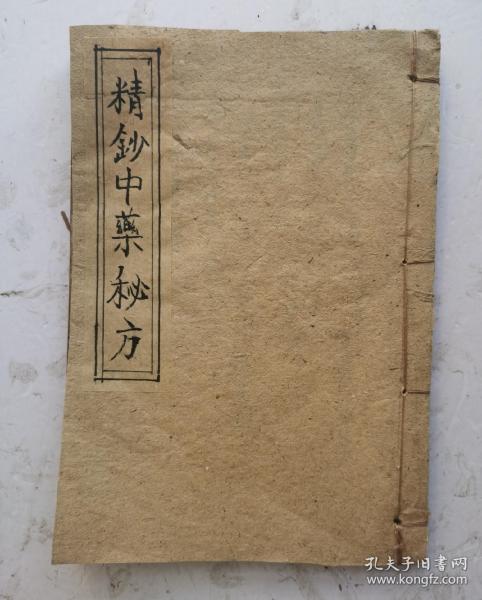 精鈔中藥秘方
孔夫子旧书网
www.kongfz.com